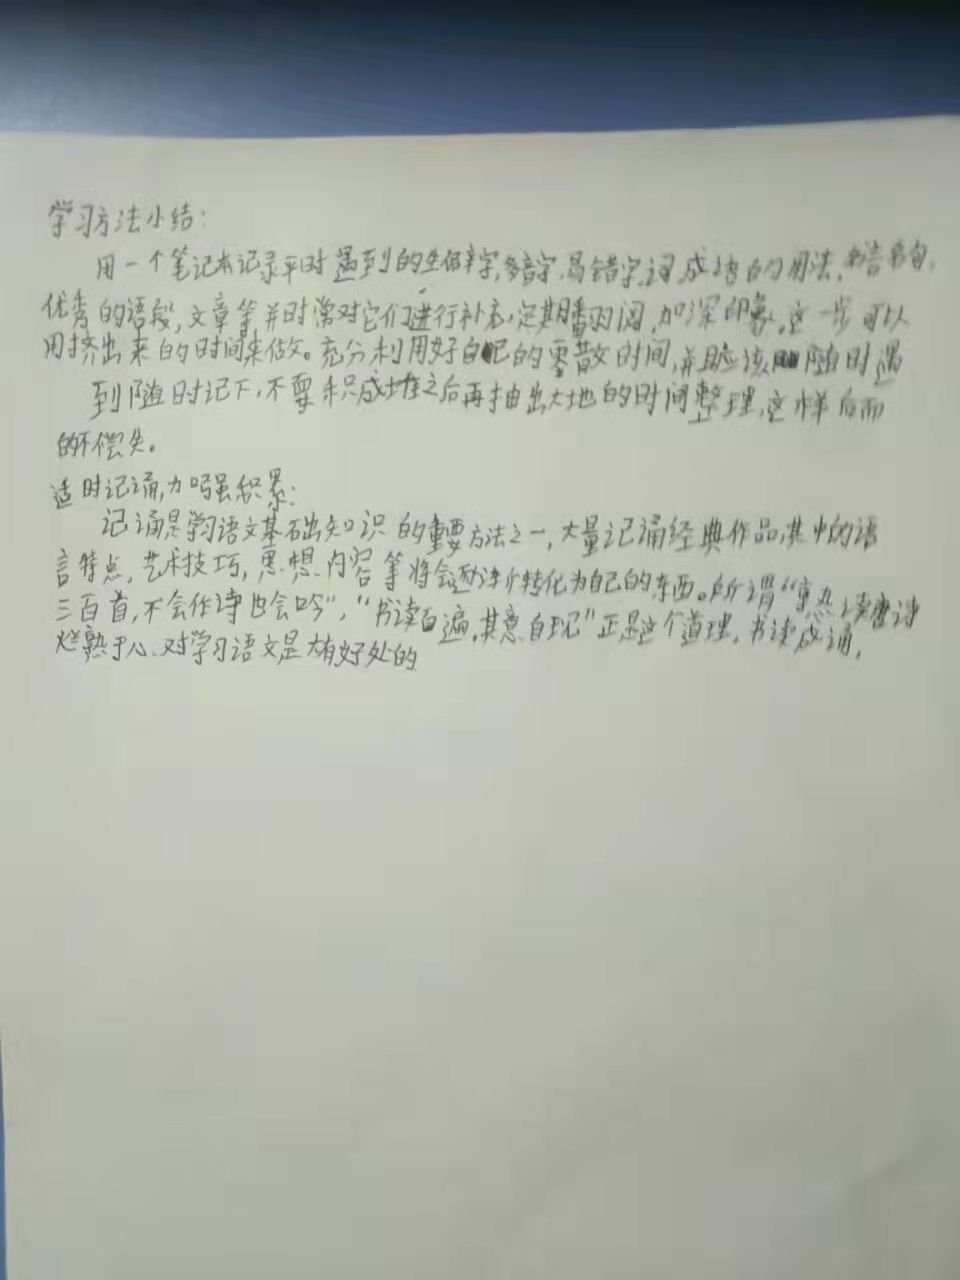 学习方法小结:
用一个笔记本记录平时遇到的生僻字,多音字,易错字,词成语的用法,名言名句,
优秀的语段,文章等,并时常对它们进行补充,定期翻阅,加深印象。这一步可以
用挤出来的时间来做。充分利用好自己的零散时间,并且应该随时遇
到随时记下,不要积成堆之后再抽出大地的时间整理,这样后而
的不偿失。
适时记诵,加强积累:
记诵是学习语文基础知识的重要方法之一,大量记诵经典作品,其中的语
言特点,艺术技巧,思想内容等将会逐渐转化为自己的东西。所谓“熟读唐诗
三百首,不会作诗也会吟”,“书读百遍,其意自现”正是这个道理,书读成诵,
烂熟于心,对学习语文是大有好处的